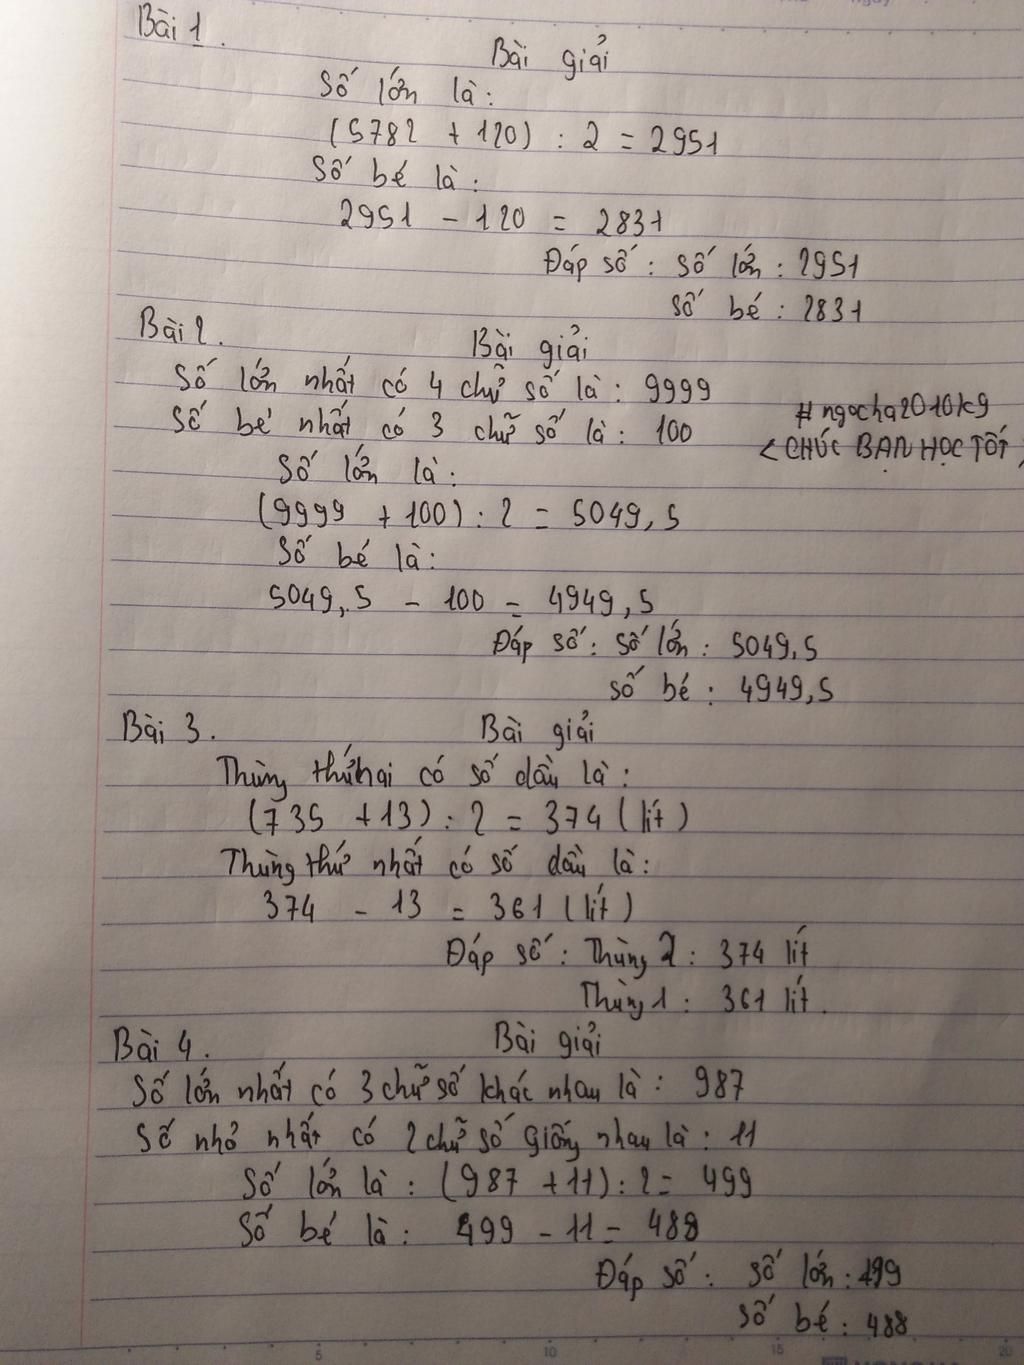 Bài 1.
Bài giải
Số lớn là:
(5782 + 120) : 2 = 2951
Số bé là:
2951 - 120 = 2831
Đáp số: Số lớn: 2951
Số bé: 2831
Bài 2.
Bài giải
Số lớn nhất có 4 chữ số là: 9999
Số bé nhất có 3 chữ số là: 100
#ngocha2010kg
<CHÚC BẠN HỌC TỐT
Số lớn là:
(9999 + 100) : 2 = 5049,5
Số bé là:
5049,5 - 100 = 4949,5
Đáp số: Số lớn: 5049,5
Số bé: 4949,5
Bài 3.
Bài giải
Thùng thứ hai có số dầu là:
(735 + 13) : 2 = 374 (lít)
Thùng thứ nhất có số dầu là:
374 - 13 = 361 (lít)
Đáp số: Thùng 2: 374 lít
Thùng 1: 361 lít.
Bài 4.
Bài giải
Số lớn nhất có 3 chữ số khác nhau là: 987
Số nhỏ nhất có 2 chữ số giống nhau là: 11
Số lớn là: (987 + 11) : 2 = 499
Số bé là: 499 - 11 = 488
Đáp số: Số lớn: 499
Số bé: 488
5 10 15 20